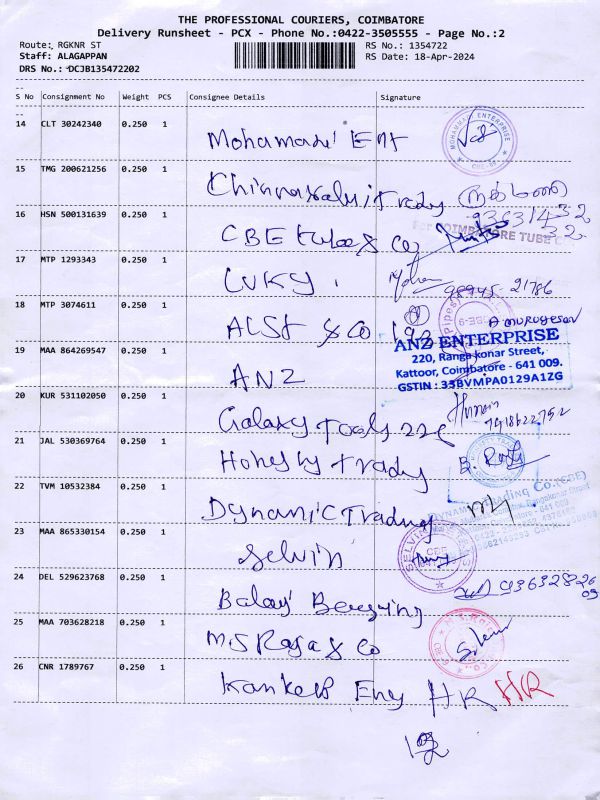 THE PROFESSIONAL COURIERS, COIMBATORE
Delivery Runsheet - PCX - Phone No.:0422-3505555 - Page No.:2
Route: RGKNR ST RS No.: 1354722
Staff: ALAGAPPAN RS Date: 18-Apr-2024
DRS No.: DCJB135472202
S No Consignment No Weight PCS Consignee Details Signature
14 CLT 30242340 0.250 1 Mohamadi Ent
MOHAMMAD ENTERPRISE
15 TMG 200621256 0.250 1 Chinnasalui Trady
93631432
32
16 HSN 500131639 0.250 1 CBE Tube & Co
For COIMBATORE TUBE
17 MTP 1293343 0.250 1 LUKY
98945-21786
18 MTP 3074611 0.250 1 ALSI & Co
A murugesan
19 MAA 864269547 0.250 1 ANZ
ANZ ENTERPRISE
220, Ranga konar Street,
Kattoor, Coimbatore - 641 009.
GSTIN : 33BVMPA0129A1ZG
20 KUR 531102050 0.250 1 Galaxy Tools
21 JAL 530369764 0.250 1 Honesty Trady
22 TVM 10532384 0.250 1 Dynamic Trading
23 MAA 865330154 0.250 1 Selvin
24 DEL 529623768 0.250 1 Balaji Bearing
25 MAA 703628218 0.250 1 M.S Raja & Co
26 CNR 1789767 0.250 1 Eng HR HR